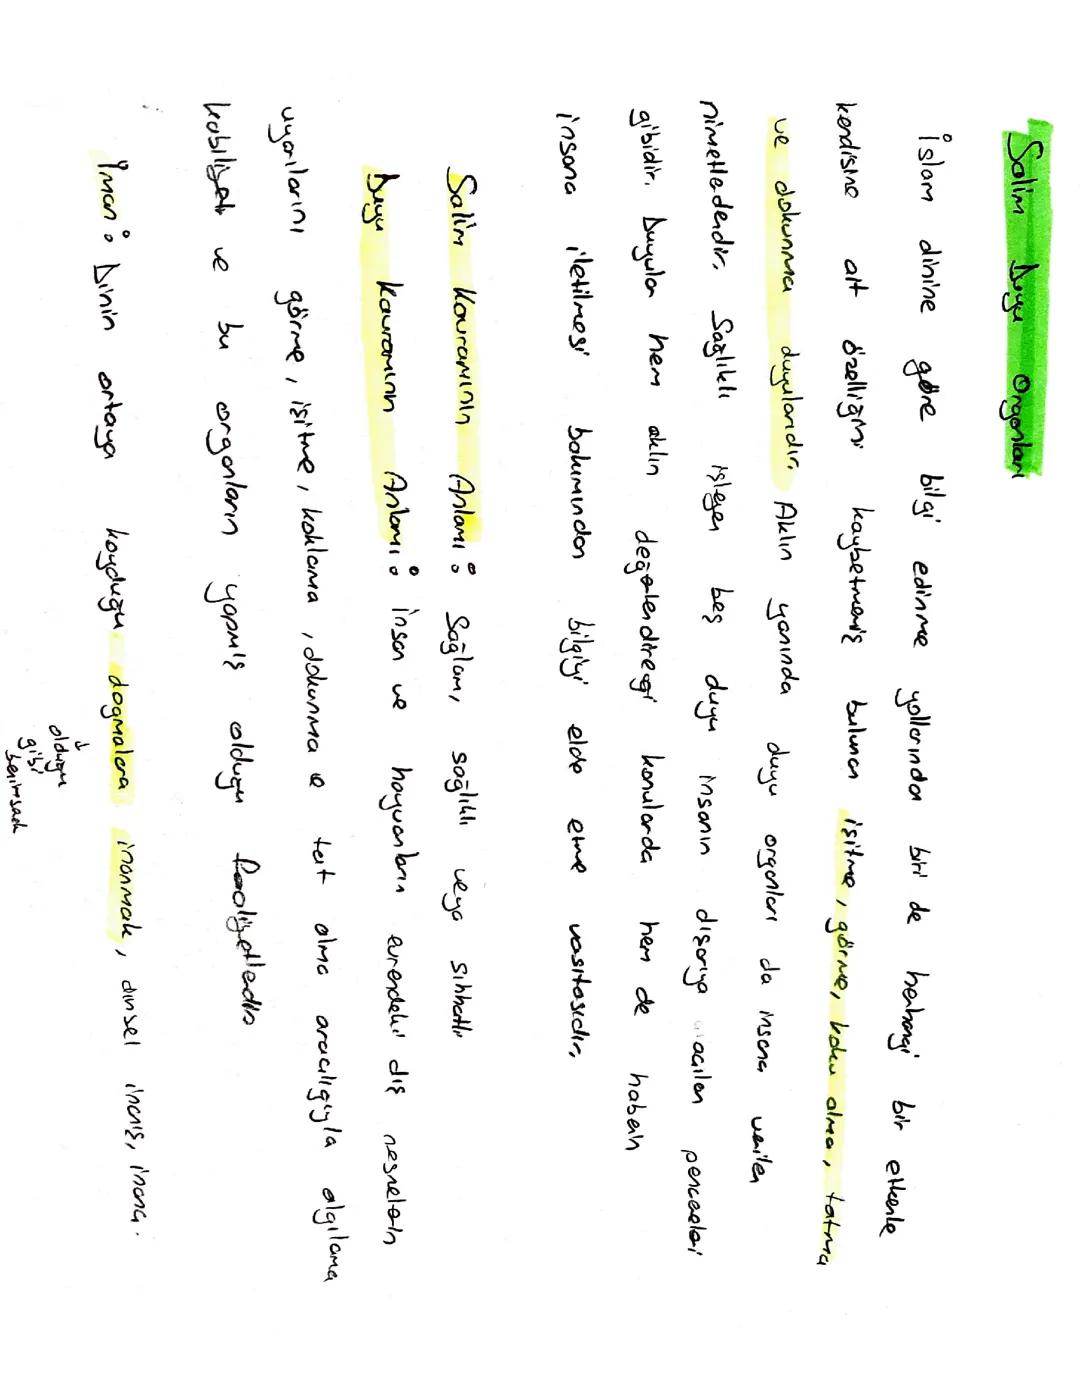 Salim Duyu Organları
İslam dinine göre bilgi edinme yollarından biri de herhangi bir etkenle
kendisine ait özelliğini kaybetmemiş bulunan işitme, görme, koku alma, tatma
ve dokunma duyularıdır. Aklın yanında duyu organları da insana verilen
nimetlerdendir. Sağlıklı işleyen beş duyu insanın dışarıya açılan pencereleri
gibidir. Duyular hem aklın değerlendireceği konularda hem de haberin
insana iletilmesi bakımından bilgiyi elde etme vasıtasıdır.
Salim Kavramının Anlamı: Sağlam, sağlıklı veya sıhhatli
Duyu Kavramının Anlamı: İnsan ve hayvanların evrendeki dış nesnelerin
uyarılarını görme, işitme, koklama, dokunma ve tat alma aracılığıyla algılama
kabiliyeti ve bu organların yapmış olduğu faaliyetlerdir
İman: Dinin ortaya koyduğu dogmalara inanmak, dinsel inanış, inanç.
↓
olduğu
gibi
benimsemek